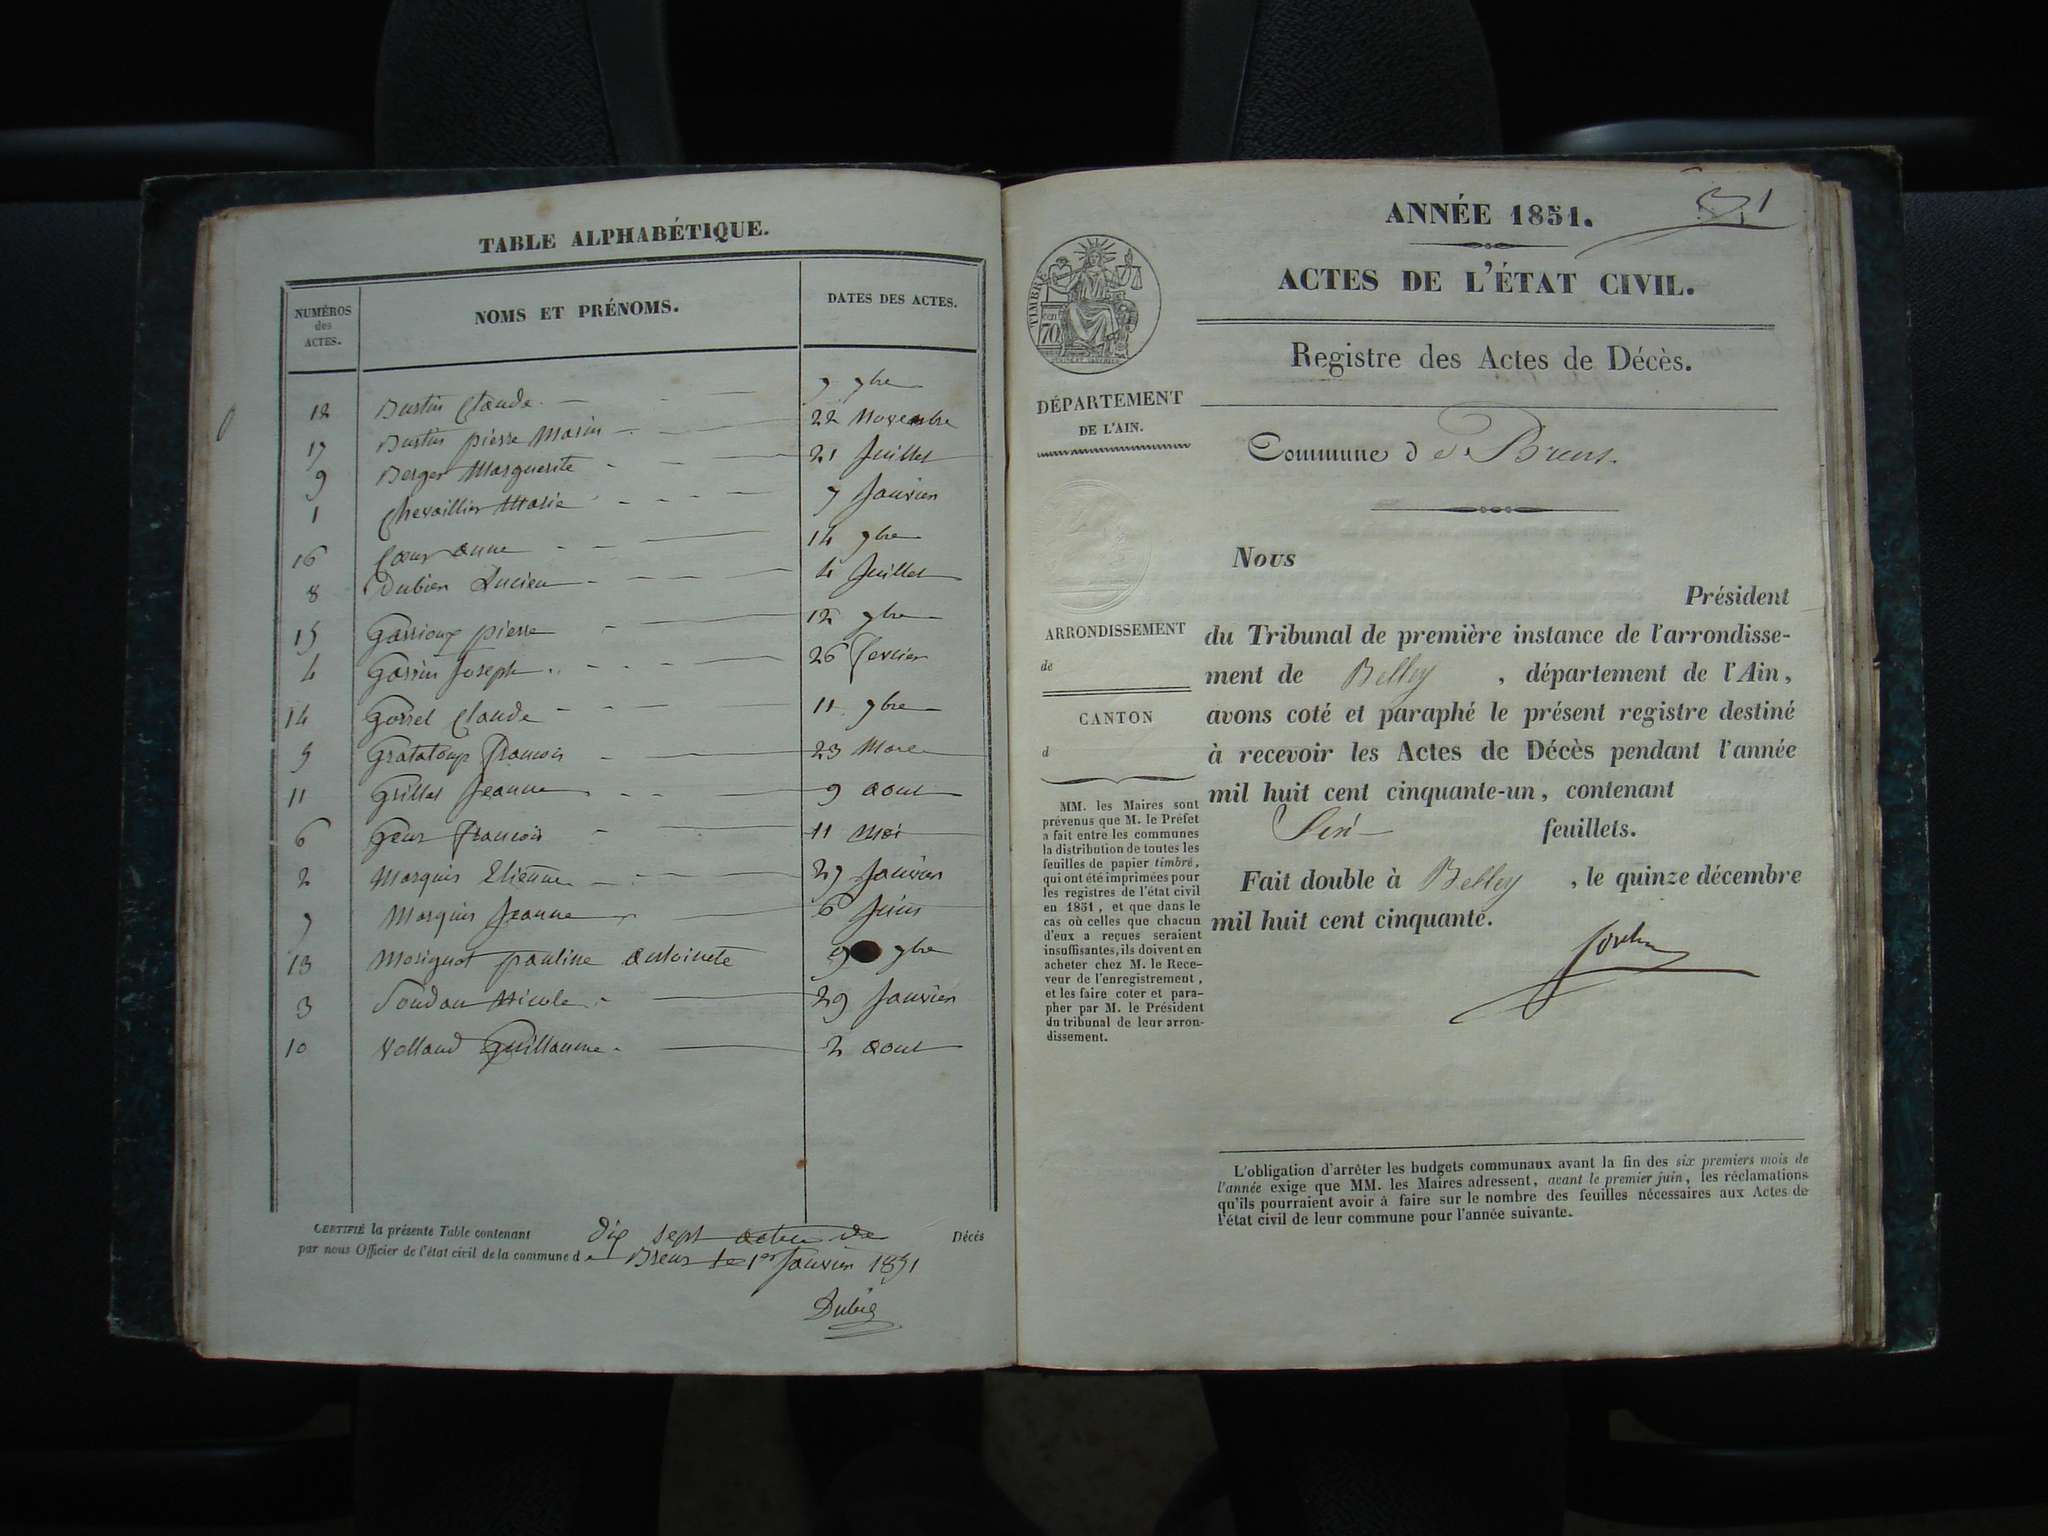 TABLE ALPHABÉTIQUE.
NUMÉROS des ACTES. NOMS ET PRÉNOMS. DATES DES ACTES.
12 Bustin Claude 9 9bre
17 Bustin pierre Marin 22 Novembre
9 Berger Marguerite 21 Juillet
1 Chevaillier Marie 7 Janvier
16 Cœur anne 14 9bre
8 Dubien Lucien 4 Juillet
15 pierre 12 9bre
4 Garrin Joseph 26 fevrier
14 Gorrel Claude 11 9bre
5 Grataloup francois 23 Mars
11 Grillet Jeanne 9 aout
6 francois 11 Mai
2 Marquis Etienne 27 Janvier
7 Marquis Jeanne 6 Juin
13 Morignot pauline antoinete 9 9bre
3 Nicole 29 Janvier
10 Volland Guillaume 2 aout
CERTIFIÉ la présente Table contenant dix sept actes de Décès
par nous Officier de l'état civil de la commune de Brens le 1er Janvier 1851
ANNÉE 1851.
1
ACTES DE L'ÉTAT CIVIL.
Registre des Actes de Décès.
TIMBRE
70
DÉPARTEMENT
DE L'AIN.
Commune d de Brens.
ARRONDISSEMENT
de
CANTON
d
MM. les Maires sont
prévenus que M. le Préfet
a fait entre les communes
la distribution de toutes les
feuilles de papier timbré,
qui ont été imprimées pour
les registres de l'état civil
en 1851, et que dans le
cas où celles que chacun
d'eux a reçues seraient
insuffisantes, ils doivent en
acheter chez M. le Rece-
veur de l'enregistrement,
et les faire coter et para-
pher par M. le Président
du tribunal de leur arron-
dissement.
Nous
Président
du Tribunal de première instance de l'arrondisse-
ment de Belley, département de l'Ain,
avons coté et paraphé le présent registre destiné
à recevoir les Actes de Décès pendant l'année
mil huit cent cinquante-un, contenant
feuillets.
Fait double à Belley, le quinze décembre
mil huit cent cinquante.
L'obligation d'arrêter les budgets communaux avant la fin des six premiers mois de
l'année exige que MM. les Maires adressent, avant le premier juin, les réclamations
qu'ils pourraient avoir à faire sur le nombre des feuilles nécessaires aux Actes de
l'état civil de leur commune pour l'année suivante.